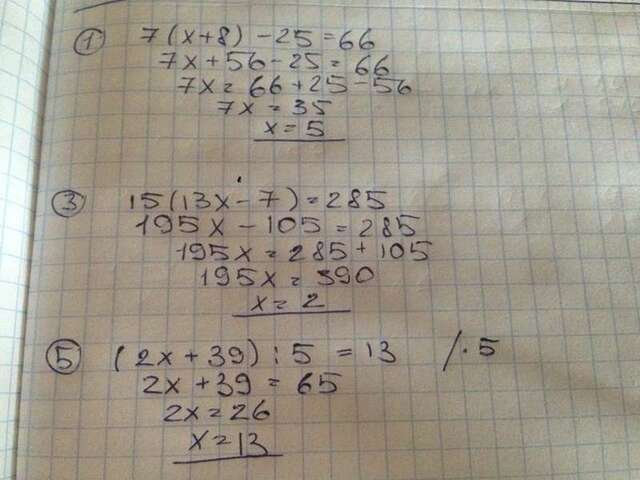 ①
7(x+8)-25=66
7x+56-25=66
7x=66+25-56
7x=35
x=5
③
15(13x-7)=285
195x-105=285
195x=285+105
195x=390
x=2
⑤
(2x+39):5=13 /·5
2x+39=65
2x=26
x=13